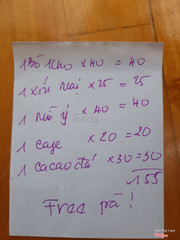 1 Bò kho x 40 = 40
1 xíu mại x 25 = 25
1 mì ý x 40 = 40
1 cafe x 20 = 20
1 cacao đá x 30 = 30
155
Free pà !